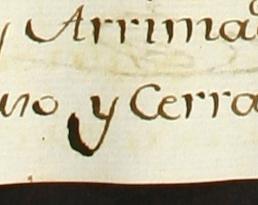 y Arrima
uso y Cerra